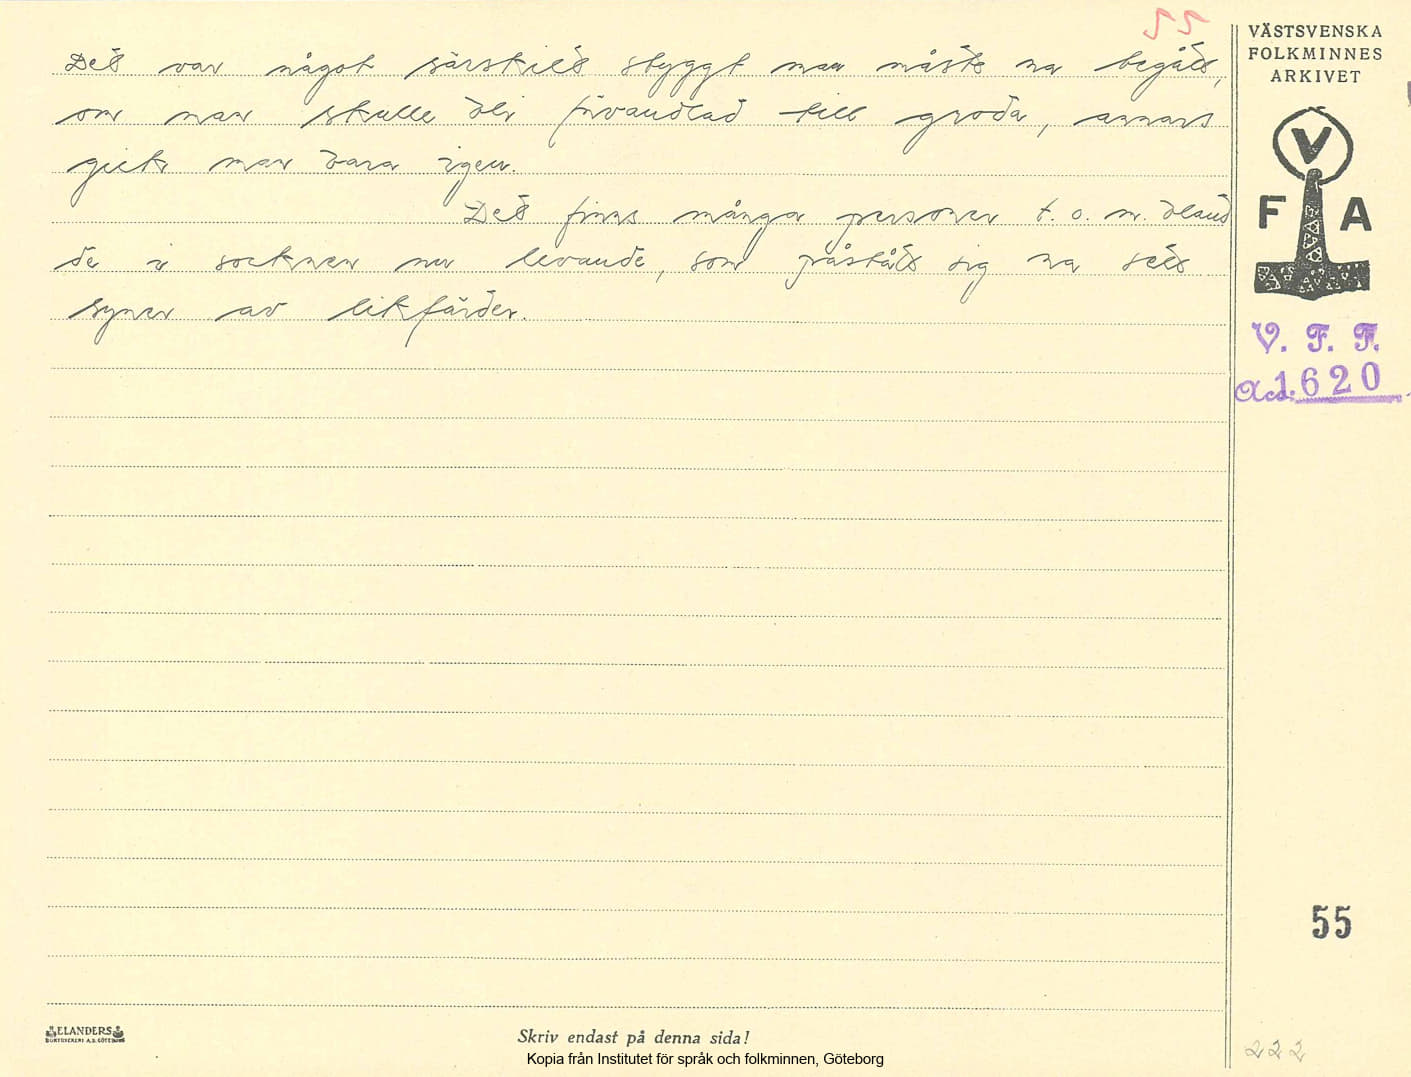 55
VÄSTSVENSKA
FOLKMINNES
ARKIVET
V
F A
V. F. F.
Acc. 1620
Det var något särskilt styggt man måste ha begått,
om man skulle bli förvandlad till groda, annars
gick man bara igen.
Det finns många personer t. o. m. bland
de i socknen nu levande, som påstått sig ha sett
syner av likfärder.
55
ELANDERS
BOKTRYCKERI A.B. GÖTEBORG
Skriv endast på denna sida!
Kopia från Institutet för språk och folkminnen, Göteborg
222